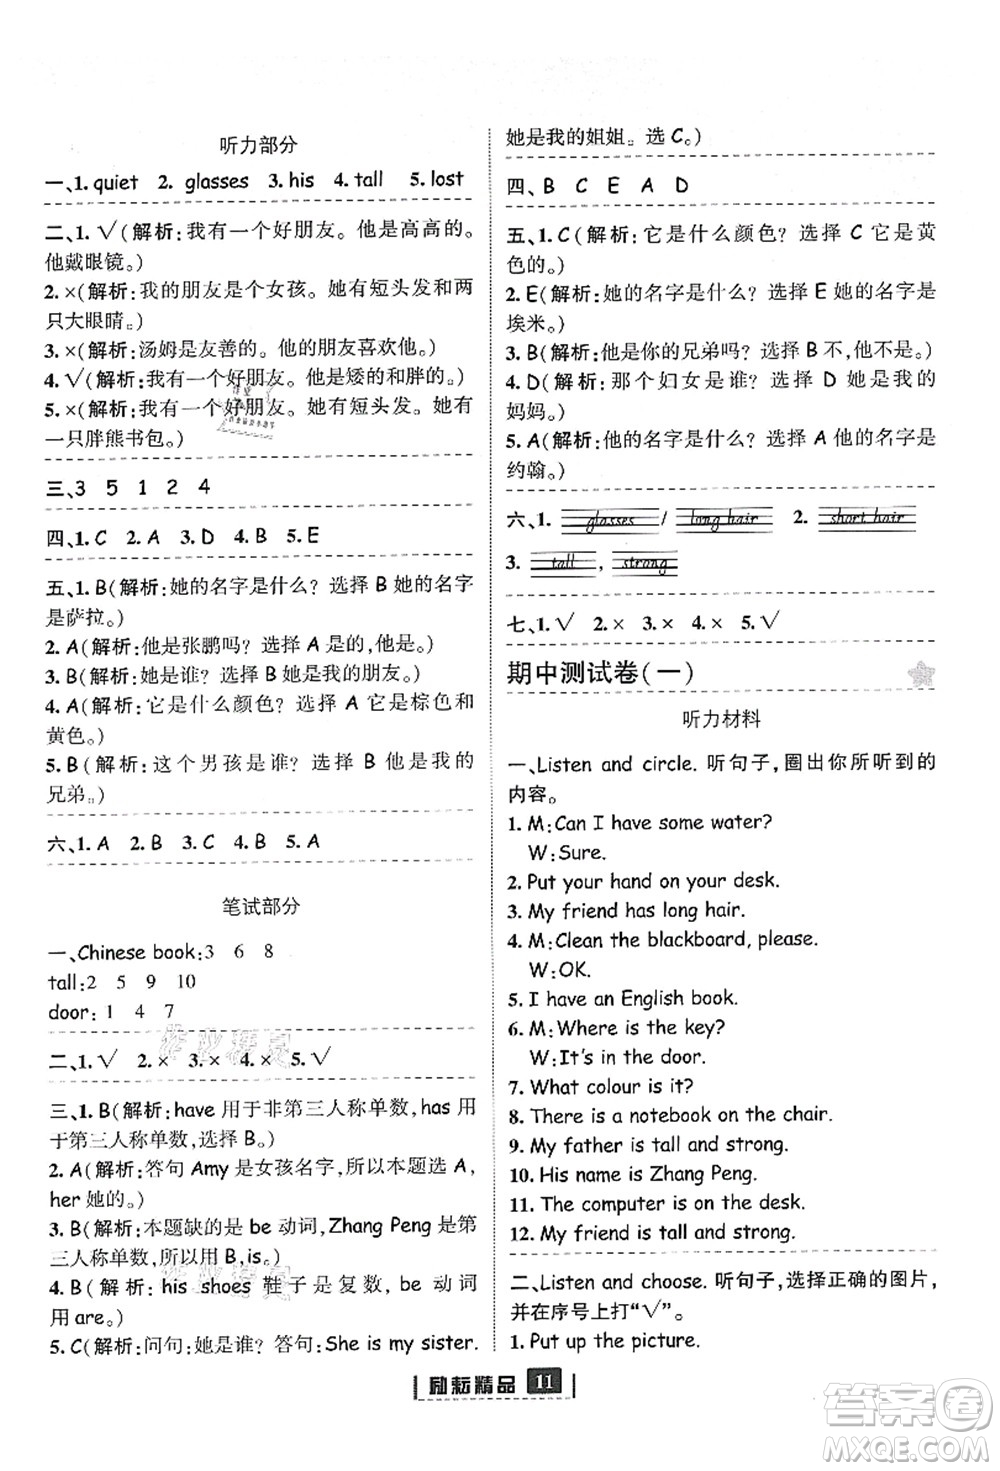 听力部分
一、1. quiet 2. glasses 3. his 4. tall 5. lost
二、1. √(解析:我有一个好朋友。他是高高的。
他戴眼镜。)
2. ×(解析:我的朋友是个女孩。她有短头发和两
只大眼睛。)
3. ×(解析:汤姆是友善的。他的朋友喜欢他。)
4. √(解析:我有一个好朋友。他是矮的和胖的。)
5. ×(解析:我有一个好朋友。她有短头发。她有
一只胖熊书包。)
三、3 5 1 2 4
四、1. C 2. A 3. D 4. B 5. E
五、1. B(解析:她的名字是什么？选择 B 她的名字
是萨拉。)
2. A(解析:他是张鹏吗？选择 A 是的,他是。)
3. B(解析:她是谁？选择 B 她是我的朋友。)
4. A(解析:它是什么颜色？选择 A 它是棕色和
黄色。)
5. B(解析:这个男孩是谁？选择 B 他是我的
兄弟。)
六、1. A 2. B 3. C 4. B 5. A
笔试部分
一、Chinese book:3 6 8
tall:2 5 9 10
door:1 4 7
二、1. √ 2. × 3. × 4. × 5. √
三、1. B(解析:have 用于非第三人称单数,has 用
于第三人称单数,选择 B。)
2. A(解析:答句 Amy 是女孩名字,所以本题选 A,
her 她的。)
3. B(解析:本题缺的是 be 动词,Zhang Peng 是第
三人称单数,所以用 B,is。)
4. B(解析:his shoes 鞋子是复数,be 动词
用 are。)
5. C(解析:问句:她是谁？答句:She is my sister.
她是我的姐姐。选 C。)
四、B C E A D
五、1. C(解析:它是什么颜色？选择 C 它是黄
色的。)
2. E(解析:她的名字是什么？选择 E 她的名字是
埃米。)
3. B(解析:他是你的兄弟吗？选择 B 不,他不是。)
4. D(解析:那个妇女是谁？选择 D 她是我的
妈妈。)
5. A(解析:他的名字是什么？选择 A 他的名字是
约翰。)
六、1. glasses / long hair 2. short hair
3. tall , strong
七、1. √ 2. × 3. × 4. × 5. √
期中测试卷(一)
听力材料
一、Listen and circle. 听句子,圈出你所听到的
内容。
1. M:Can I have some water?
W:Sure.
2. Put your hand on your desk.
3. My friend has long hair.
4. M:Clean the blackboard, please.
W:OK.
5. I have an English book.
6. M:Where is the key?
W:It's in the door.
7. What colour is it?
8. There is a notebook on the chair.
9. My father is tall and strong.
10. His name is Zhang Peng.
11. The computer is on the desk.
12. My friend is tall and strong.
二、Listen and choose. 听句子,选择正确的图片,
并在序号上打“√”。
1. Put up the picture.
励耘精品 11
答案圈
MXQE.COM